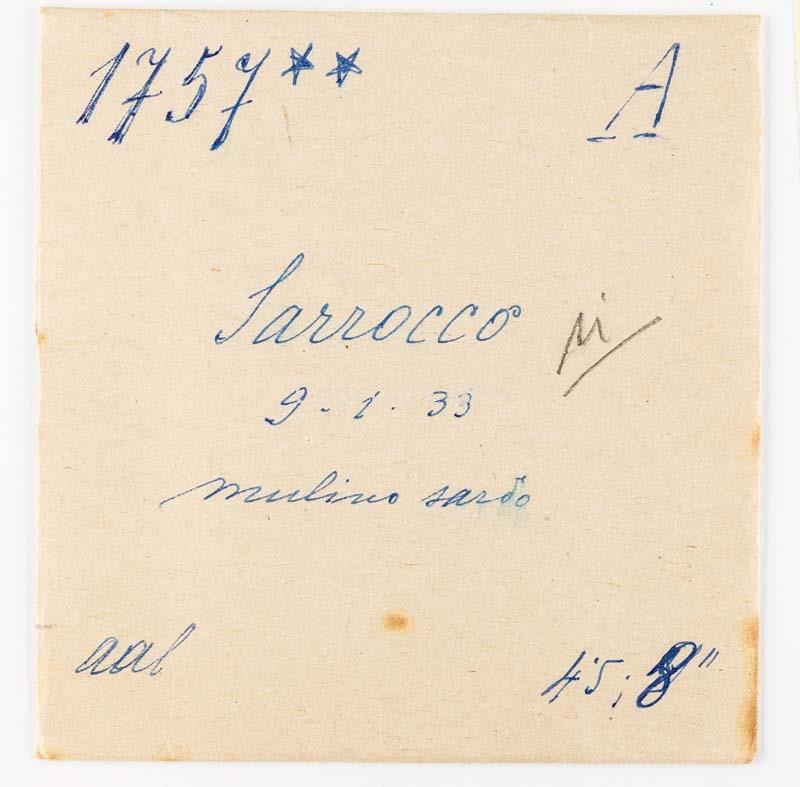 1757** A
Sarrocco
9-1.33
mulino sardo
aal
45; 8"